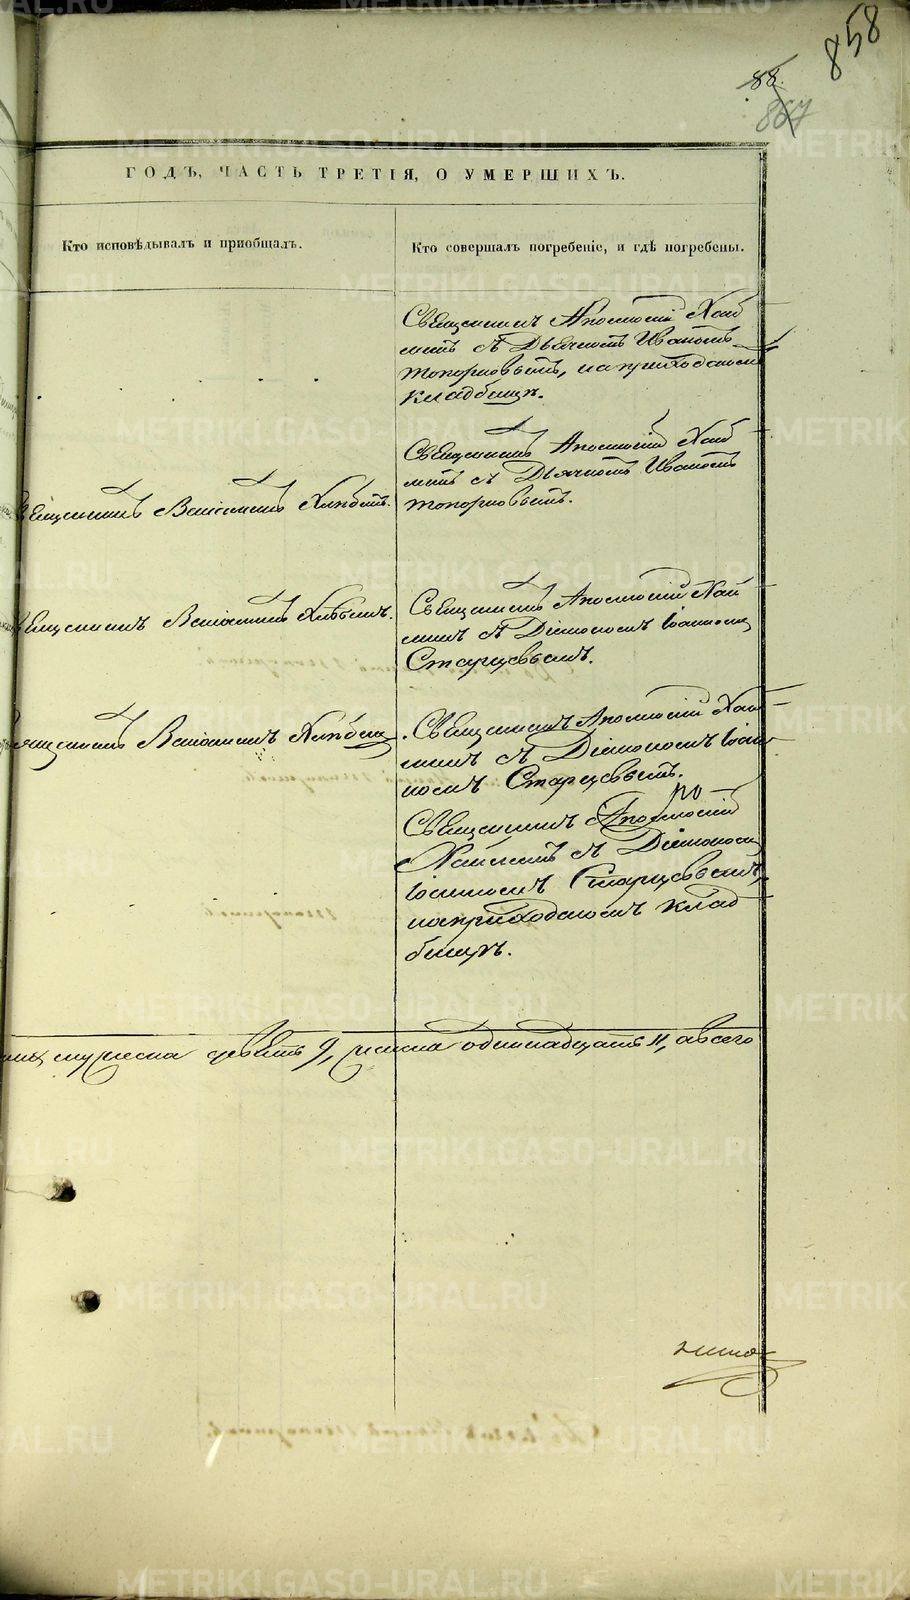 858
88.
867
ГОДЪ, ЧАСТЬ ТРЕТІЯ, О УМЕРШИХЪ.
Кто исповѣдывалъ и пріобщалъ.
Кто совершалъ погребеніе, и гдѣ погребены.
Священникъ Аполлосій Хай
минъ съ Дьячкомъ Иваномъ
Топорковымъ, на приходскомъ
кладбищѣ.
Священникъ Веніаминъ Хлѣбинъ.
Священникъ Аполлосій Хай
минъ съ Дьячкомъ Иваномъ
Топорковымъ.
Священникъ Веніаминъ Хлѣбинъ.
Священникъ Аполлосій Хай
минъ съ Діакономъ Іоанномъ
Старцевымъ.
Священникъ Веніаминъ Хлѣбинъ
Священникъ Аполлосій Хай
минъ съ Діакономъ Іоан
номъ Старцевымъ.
Священникъ Аполлосій
Хайминъ съ Діакономъ
Іоанномъ Старцевымъ,
на приходскомъ клад
бищѣ.
мужеска девять 9, женска одинадцать 11, а всего
METRIKI.GASO-URAL.RU